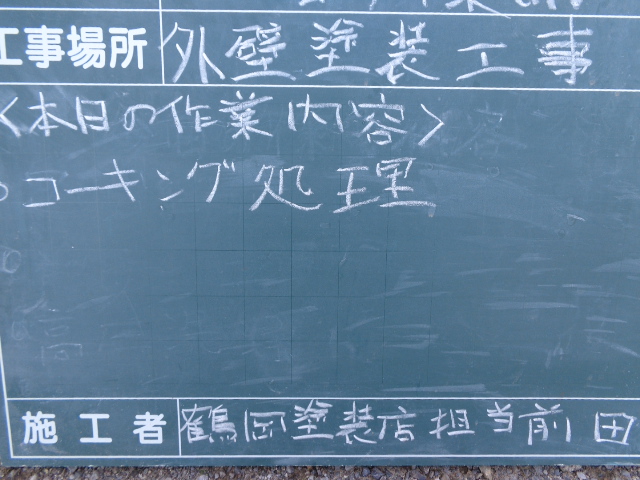 工事場所 外壁塗装工事
<本日の作業内容>
○コーキング処理
施工者 鶴岡塗装店担当前田